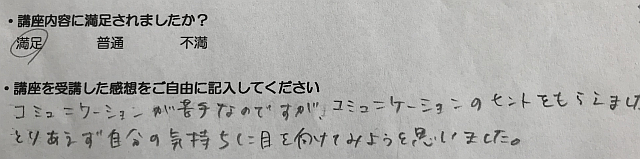 ・講座内容に満足されましたか？
満足 普通 不満
・講座を受講した感想をご自由に記入してください
コミュニケーションが苦手なのですが、コミュニケーションのヒントをもらえました
とりあえず自分の気持ちに目を向けてみようを思いました。